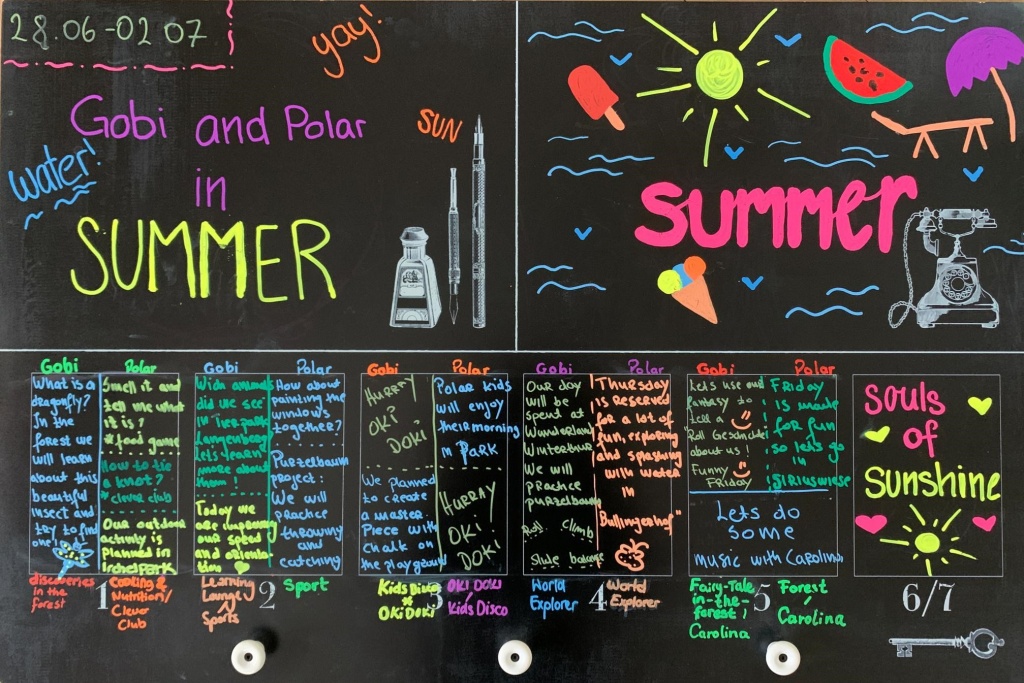 28.06-02 07
yay!
Gobi and Polar
in
SUMMER
water!
SUN
summer
Gobi
What is a
dragonfly?
In the
forest we
will learn
about this
beautiful
insect and
try to find
one!
discoveries
in the
forest
Polar
Smell it and
tell me what
it is?
*food game
How to tie
a knot?
* clever club
Our outdoor
activity is
planned in
IrchelPARK
Cooking &
Nutrition/
Clever
Club
1
Gobi
Wich animals
did we see
in Tierpark
Langenberg
Let's learn
more about
them!
Today we
are improving
our speed
and orienta
tion
Learning
Lounge/
Sports
Polar
How about
painting the
windows
together?
Purzelbaum
project:
We will
practice
throwing
and
catching
Sport
2
Gobi
HURRAY
OKI
DOKI
We planned
to create
a master
Piece with
chalk on
the playground
Kids Disco
OKI DOKI
Polar
Polar kids
will enjoy
their morning
in PARK
HURRAY
OKI
DOKI
OKI DOKI
Kids Disco
3
Gobi
Our day
will be
spend at
Wunderland
Winterthur
We will
practice
purzelbaum
Roll climb
Slide balance
World
Explorer
Polar
Thursday
is reserved
for a lot of
fun, exploring
and splashing
with water
in
Bullingerhof"
World
Explorer
4
Gobi
Let's use our
fantasy to
tell a
Roll Geschichte
about us!
Funny
Friday
Polar
FRIDAY
is made
for fun
so let's go
in
SIRIUSWIESE
Lets do
some
music with Carolina
Fairy-Tale
in-the-
forest/
Carolina
5
Forest
/
Carolina
souls
of
sunshine
6/7